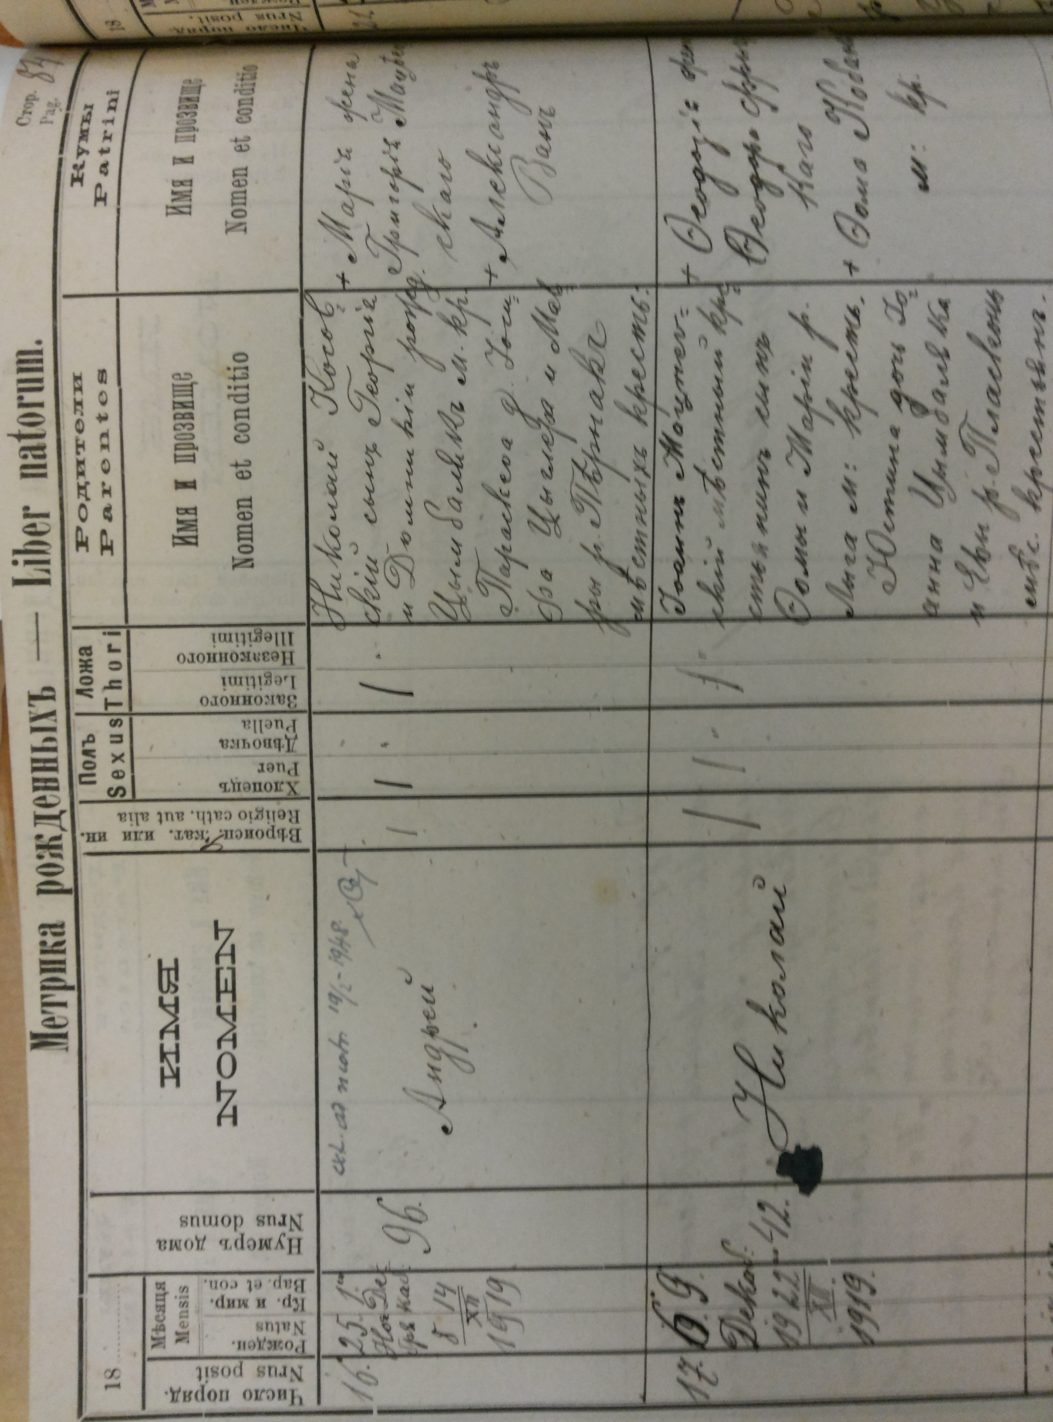 Стор. 84
Pag.
Метрика рожденныхъ — Liber natorum.
18
Число поряд.
Nrus posit
Мѣсяця
Mensis
Рожден.
Natus
Кр. и мир.
Bap. et con.
Нумеръ дома
Nrus domus
ИМЯ
NOMEN
Вѣроисп. кат. или ин.
Religio cath. aut alia
Полъ
Sexus
Хлопець
Puer
Дѣвочка
Puella
Ложа
Thori
Законного
Legitimi
Незаконного
Illegitimi
Родители
Parentes
Имя и прозвище
Nomen et conditio
Кумы
Patrini
Имя и прозвище
Nomen et conditio
16.
25.
8 14
XII
1919
96.
19/2 - 1948.
Андрей
Николай Косов
скій сынъ Георгія
и Домникіи рожд.
Цымбалякъ м. кр.
Параскева д. Іоси
фа Цыглера и Мав
ры р. Пѣрнакъ
мѣстныхъ кресть:
+ Марія жена
Григорія Моцѣв
ского
+ Александръ
Ванъ
17.
6. 9.
Декаб:
19 22
XII
1919.
42.
Николай
Іоаннъ Моцпев=
скій мѣстный кре
стьянинъ сынъ
Ѳомы и Маріи р.
Лыга м: кресть.
Юстина дочь Іо
анна Цымбаляка
и Евы р. Пласкень
мѣс. крестьянъ.
+ Ѳеодзія
Ѳеодора
кого
+ Ѳома Кобань
м: кр.